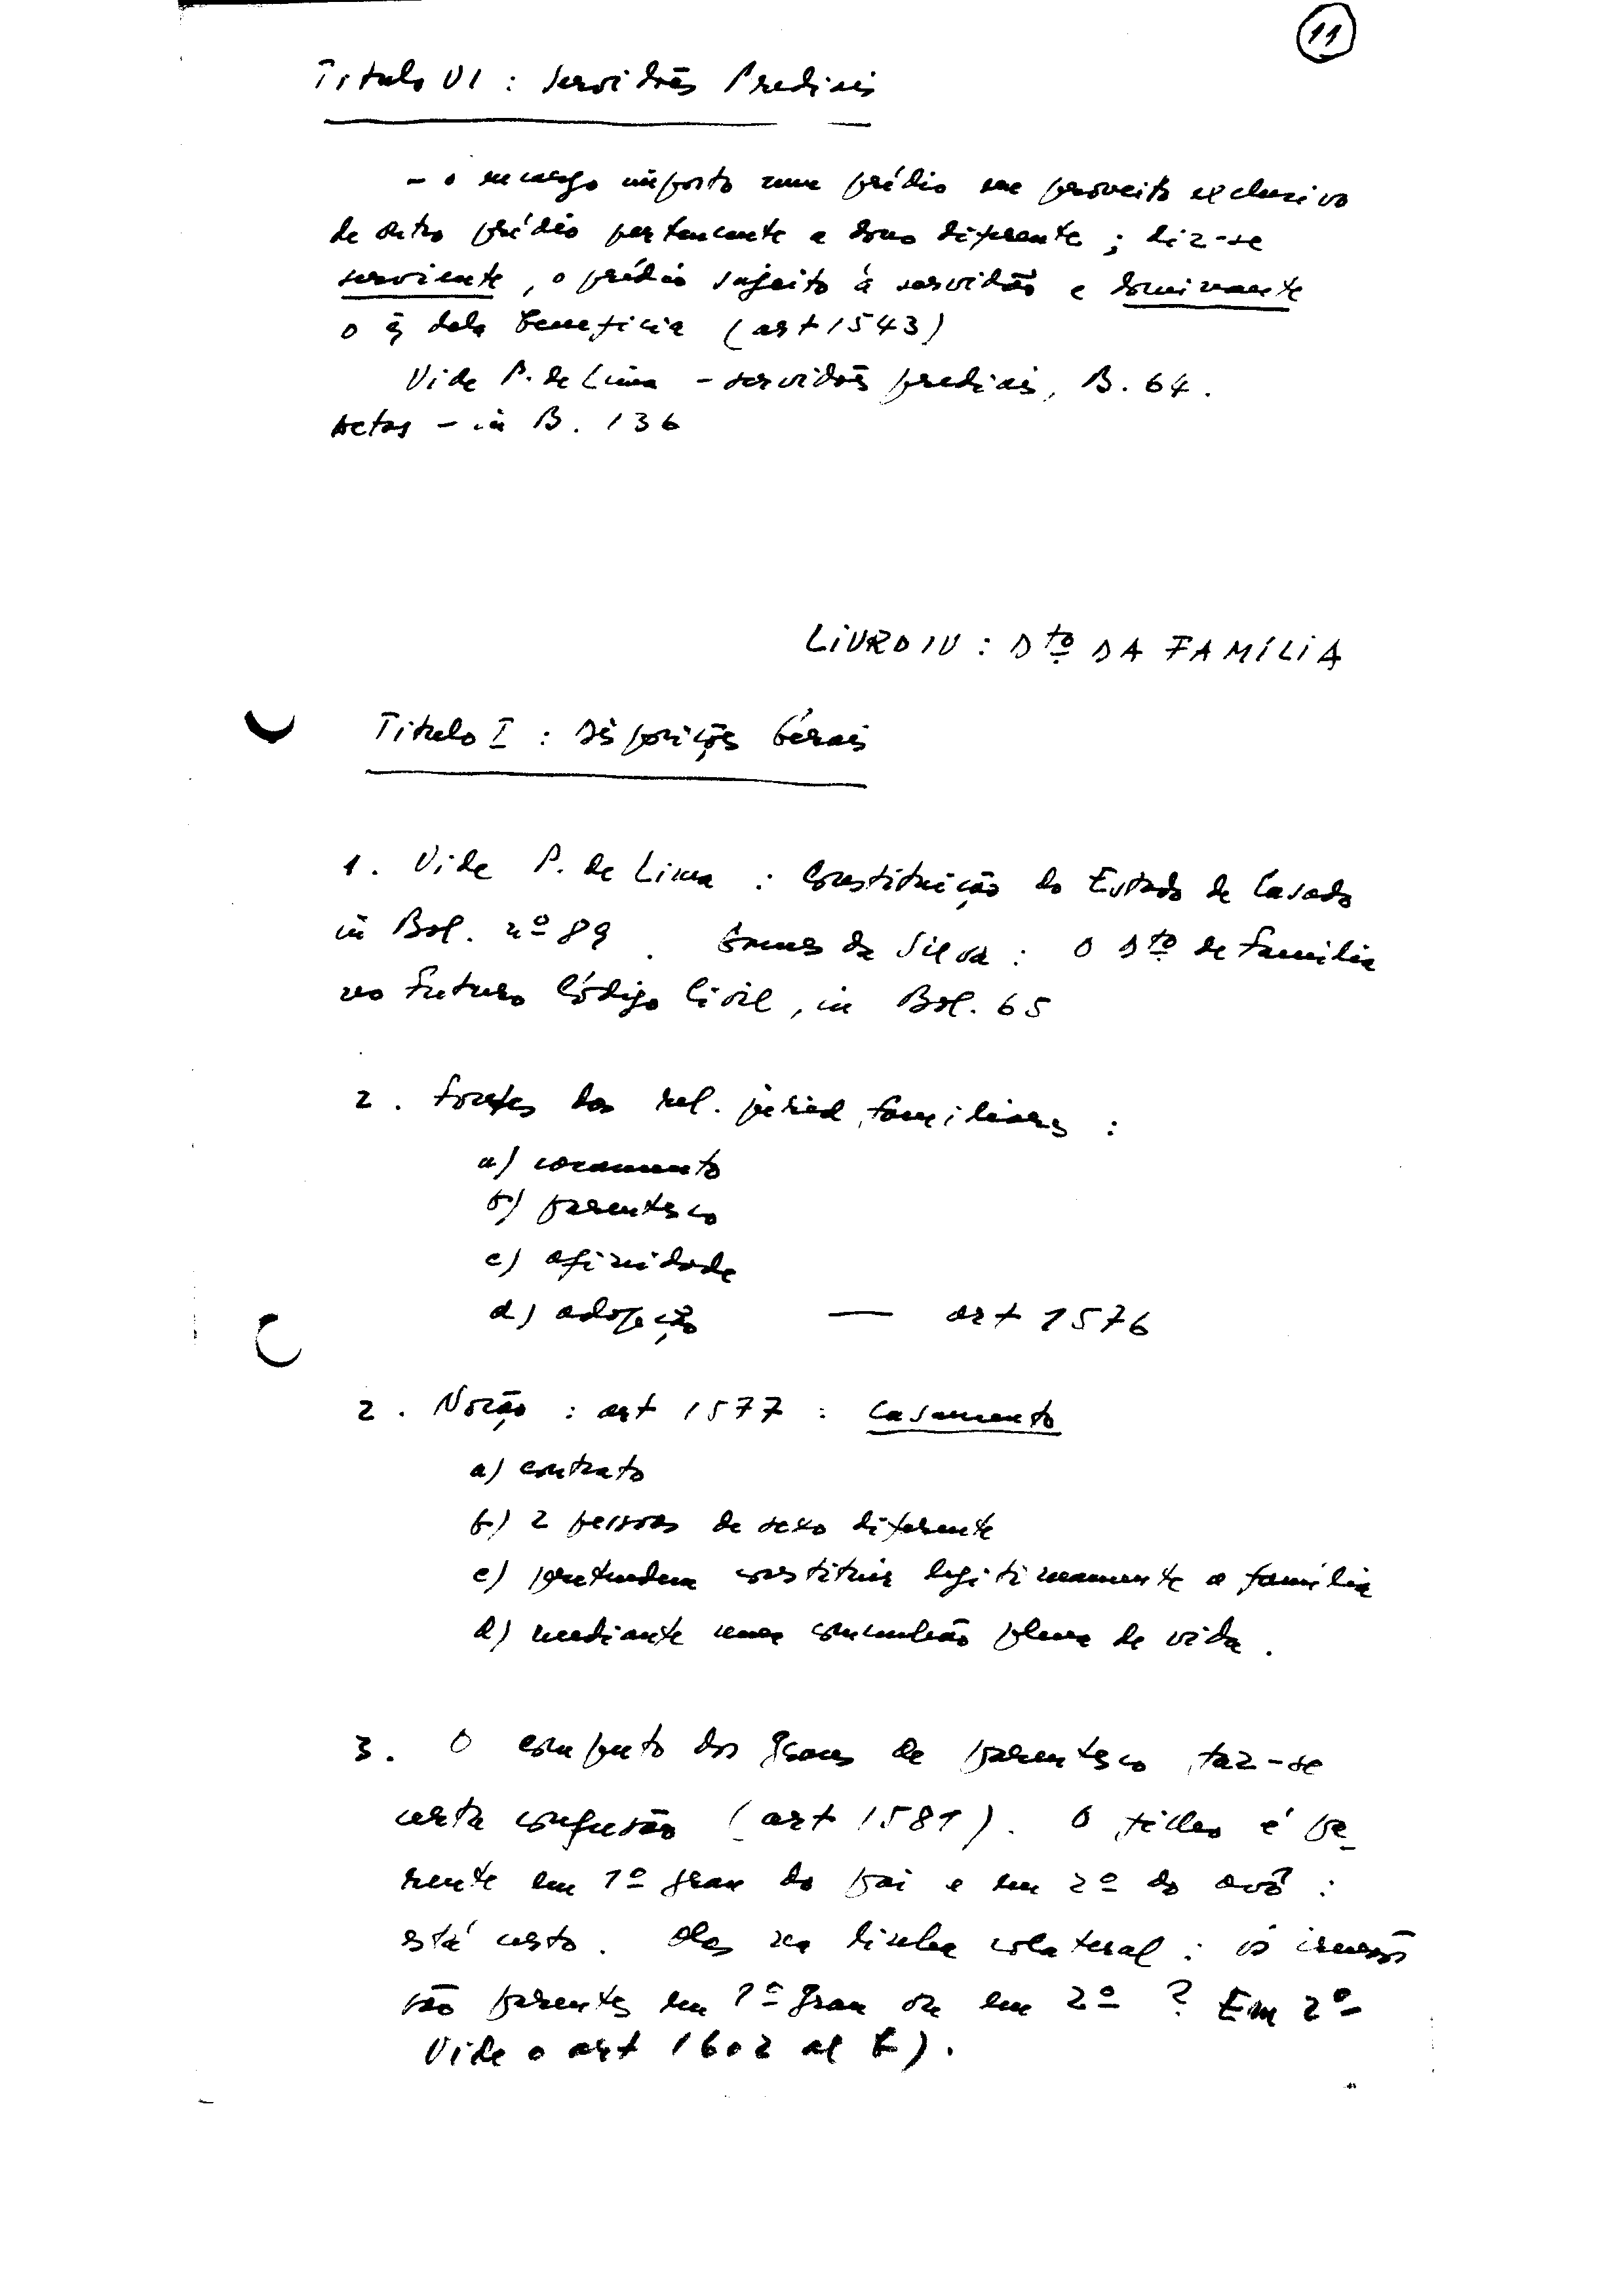 11
Titulo VI : Servidões Prediais
- o encargo imposto num prédio em proveito exclusivo
de outro prédio pertencente a dono diferente ; diz-se
serviente, o prédio sujeito à servidão e dominante
o q̃ dela beneficia (art 1543)
Vide P. de Lima - servidões prediais, B. 64.
Actas - in B. 136
LIVRO IV : Dtº DA FAMÍLIA
Titulo I : Disposições Gerais
1. Vide P. de Lima : Constituição do Estado de Casado
in Bol. nº 89. Gomes da Silva : O Dtº de Família
no Futuro Código Civil, in Bol. 65
2. Fontes das rel. juríd. familiares :
a) casamento
b) parentesco
c) afinidade
d) adopção — art 1576
2. Noção : art 1577 : Casamento
a) contrato
b) 2 pessoas de sexo diferente
c) pretendem constituir legitimamente a família
d) mediante uma comunhão plena de vida.
3. O computo dos graus de parentesco faz-se
certa confusão (art 1581). O filho é pa-
rente em 1º grau do pai e em 2º do avô :
está certo. Mas na linha colateral : os irmãos
são parentes em 1º grau ou em 2º ? Em 2º
Vide o art 1602 al b).